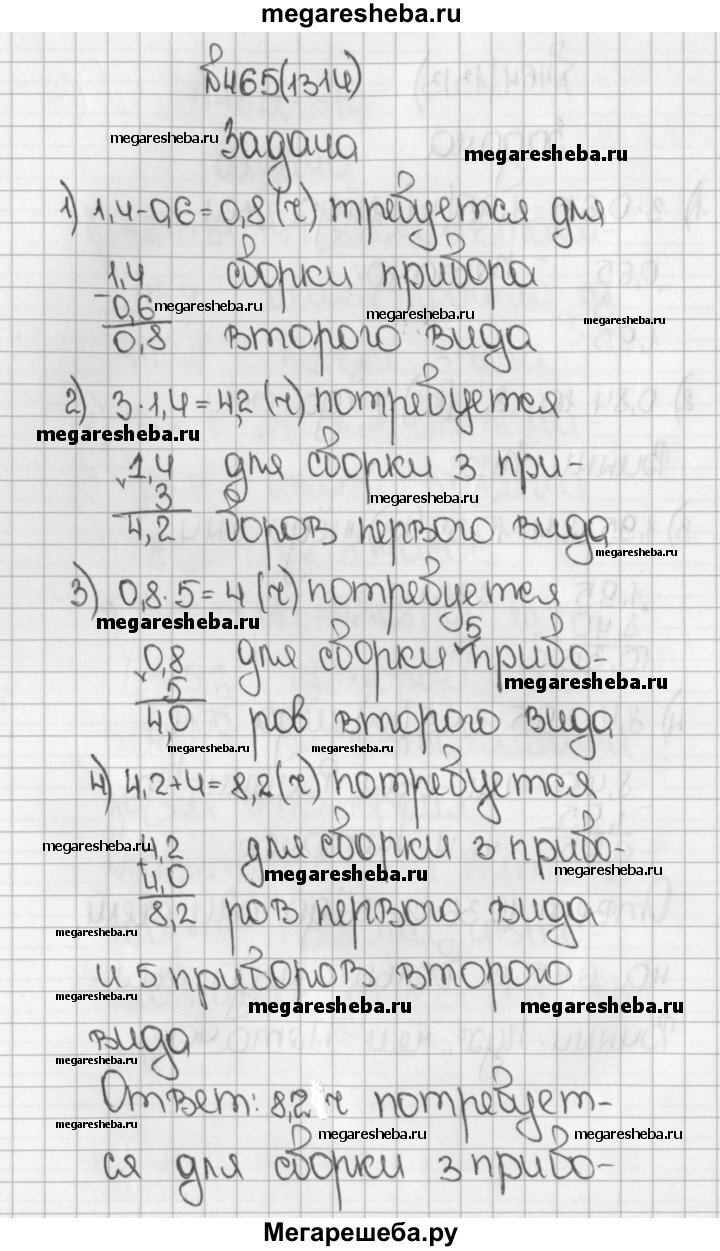 megaresheba.ru
№465(1314)
megaresheba.ru
Задача
megaresheba.ru
1) 1,4-0,6=0,8 (ч) требуется для
1,4 сборки прибора
-0,6 megaresheba.ru megaresheba.ru megaresheba.ru
0,8 второго вида
2) 3·1,4=4,2 (ч) потребуется
megaresheba.ru
×1,4 для сборки 3 при-
3 megaresheba.ru
4,2 боров первого вида
megaresheba.ru
3) 0,8·5=4 (ч) потребуется
megaresheba.ru
×0,8 для сборки 5 прибо-
5 megaresheba.ru
4,0 ров второго вида
megaresheba.ru megaresheba.ru
4) 4,2+4=8,2 (ч) потребуется
megaresheba.ru +4,2 для сборки 3 прибо-
4,0 megaresheba.ru megaresheba.ru
8,2 ров первого вида
megaresheba.ru
и 5 приборов второго
megaresheba.ru megaresheba.ru megaresheba.ru
вида
megaresheba.ru megaresheba.ru
Ответ: 8,2 ч потребует-
megaresheba.ru megaresheba.ru megaresheba.ru
ся для сборки 3 прибо-
Мегарешеба.ру